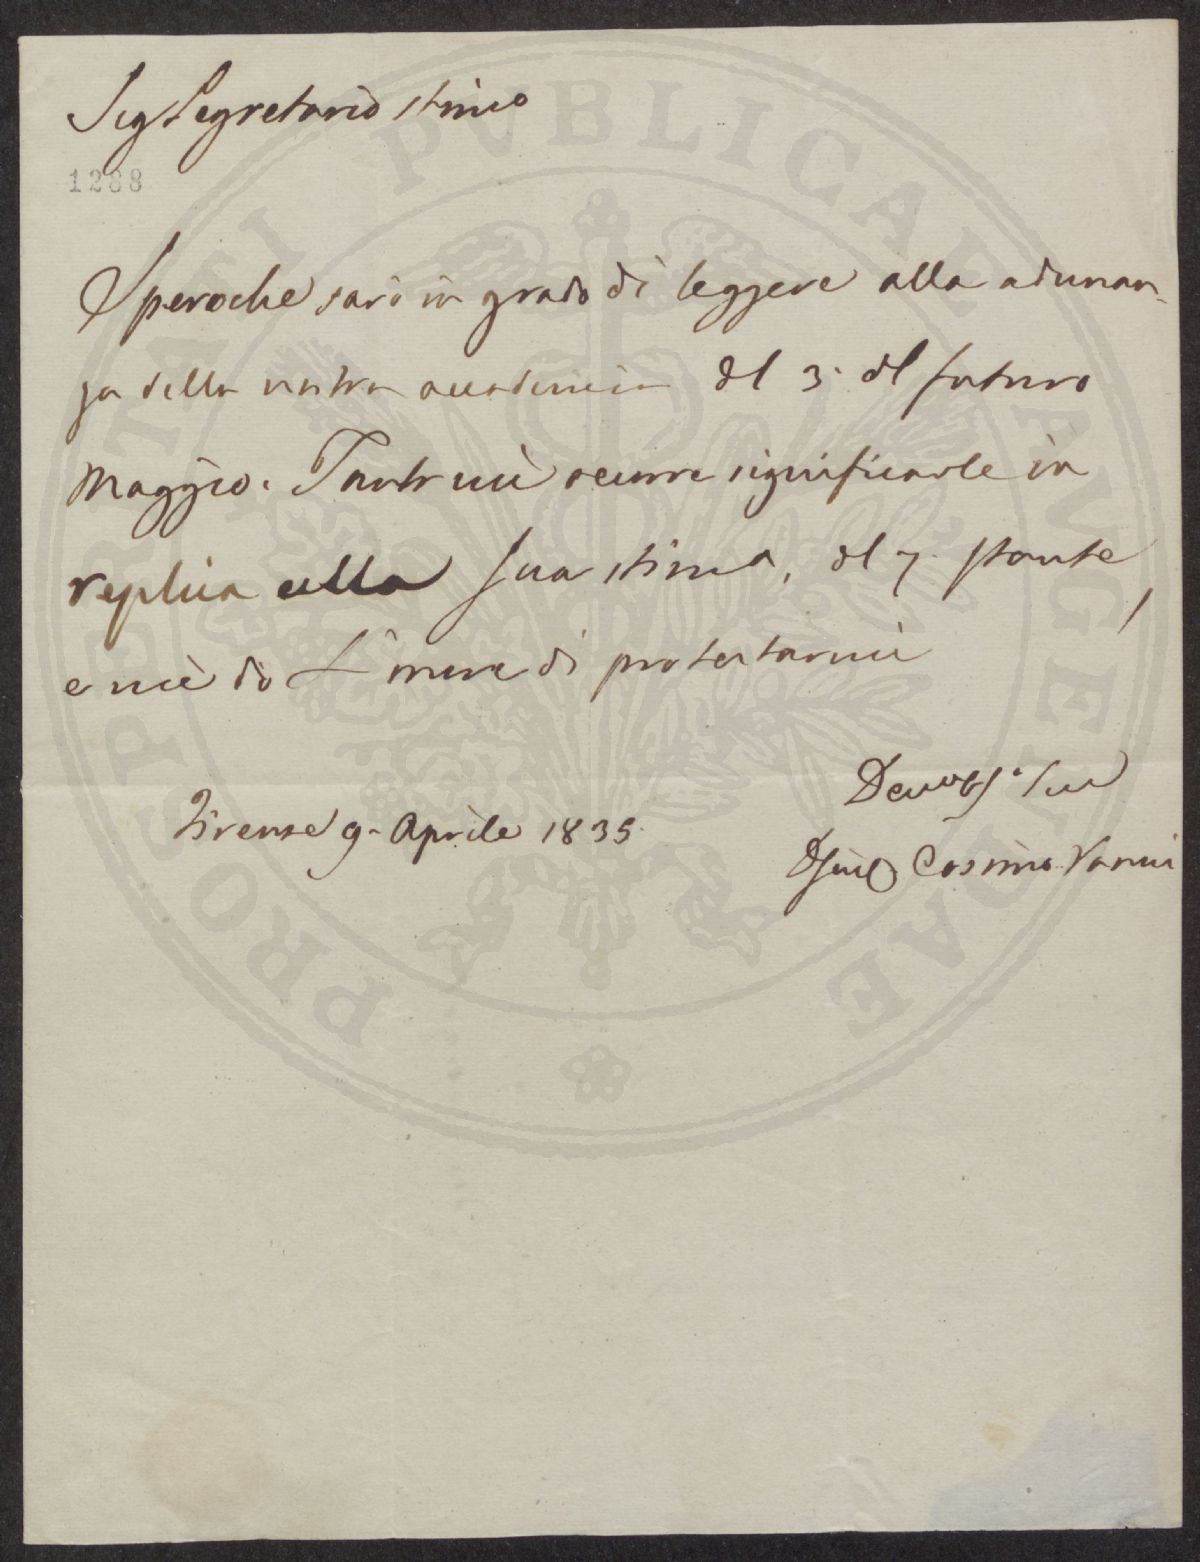 Sig Segretario stimo
1288
Spero che sarò in grado di leggere alla adunan-
za della nostra accademia del 3. del futuro
Maggio. Tanto mi occurre significarle in
replica alla Sua stima, del 7. stante,
e mi dò L'onore di protestarmi
Devmo Obb.o Suo
Firenze 9. Aprile 1835.
Cosimo Vanni
PROSPERITATI PVBLICAE AVGENDAE